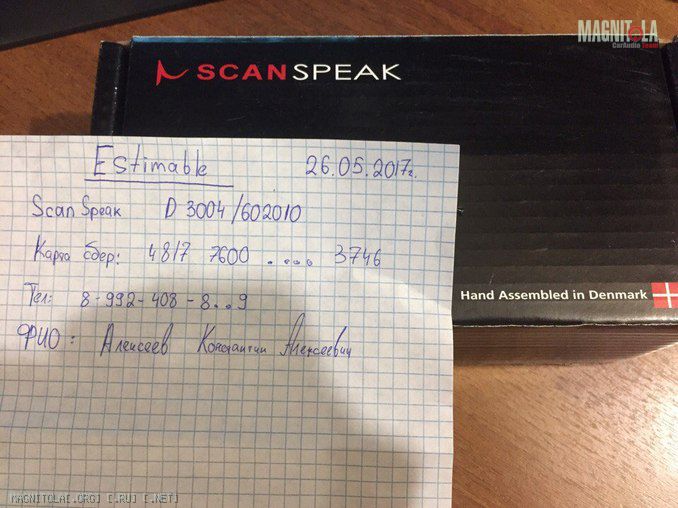 MAGNITOLA
CarAudio Team
SCANSPEAK
Estimable 26.05.2017г.
Scan Speak D 3004/602010
Карта сбер: 4817 7600 .... 3746
Тел: 8-992-408-8..9
ФИО: Алексеев Константин Алексеевич
Hand Assembled in Denmark
MAGNITOLA[.ORG] [.RU] [.NET]